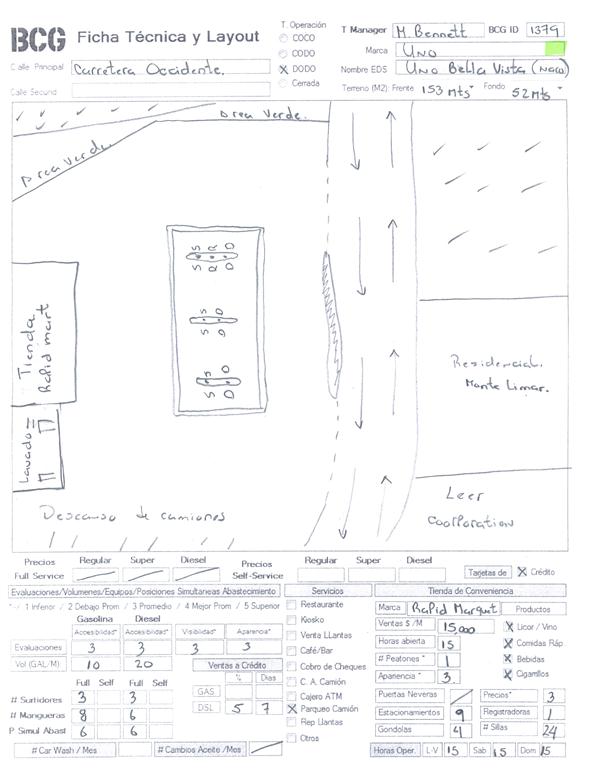 BCG Ficha Técnica y Layout
T. Operación
COCO
CODO
X DODO
Cerrada
T Manager M. Bennett BCG ID 1379
Marca UNO
Nombre EDS UNO Bella Vista (Naco)
Calle Principal Carretera Occidente.
Calle Secund
Terreno (M2): Frente 153 mts² Fondo 52 mts²
Area Verde.
Area Verde
S R D
S R D
S D
S D
S D
S D
Tienda
Rapid mart
Lavado
Residencial.
Monte Limar.
Descanso de camiones
Leer
Coorporation
Precios Regular Super Diesel Precios Regular Super Diesel
Full Service Self-Service Tarjetas de X Crédito
Evaluaciones/Volumenes/Equipos/Posiciones Simultaneas Abastecimiento
*/ 1 Inferior / 2 Debajo Prom / 3 Promedio / 4 Mejor Prom / 5 Superior
Gasolina Diesel
Accesibilidad* Accesibilidad* Visibilidad* Aparencia*
Evaluaciones 3 3 3 3
Vol (GAL/M) 10 20
Ventas a Crédito
% Dias
GAS
DSL 5 7
Full Self Full Self
# Surtidores 3 3
# Mangueras 8 6
P Simul Abast 6 6
# Car Wash / Mes # Cambios Aceite /Mes
Servicios
Restaurante
Kiosko
Venta Llantas
Café/Bar
Cobro de Cheques
C. A. Camión
Cajero ATM
X Parqueo Camión
Rep Llantas
Otros
Tienda de Conveniencia
Marca Rapid Marquet Productos
Ventas $ /M 15,000 X Licor / Vino
Horas abierta 15 X Comidas Ráp
# Peatones * 1 X Bebidas
Apariencia * 3. X Cigarrillos
Puertas Neveras Precios* 3
Estacionamientos 9 Registradoras 1
Gondolas 4 # Sillas 24
Horas Oper. L-V 15 Sab 15 Dom 15